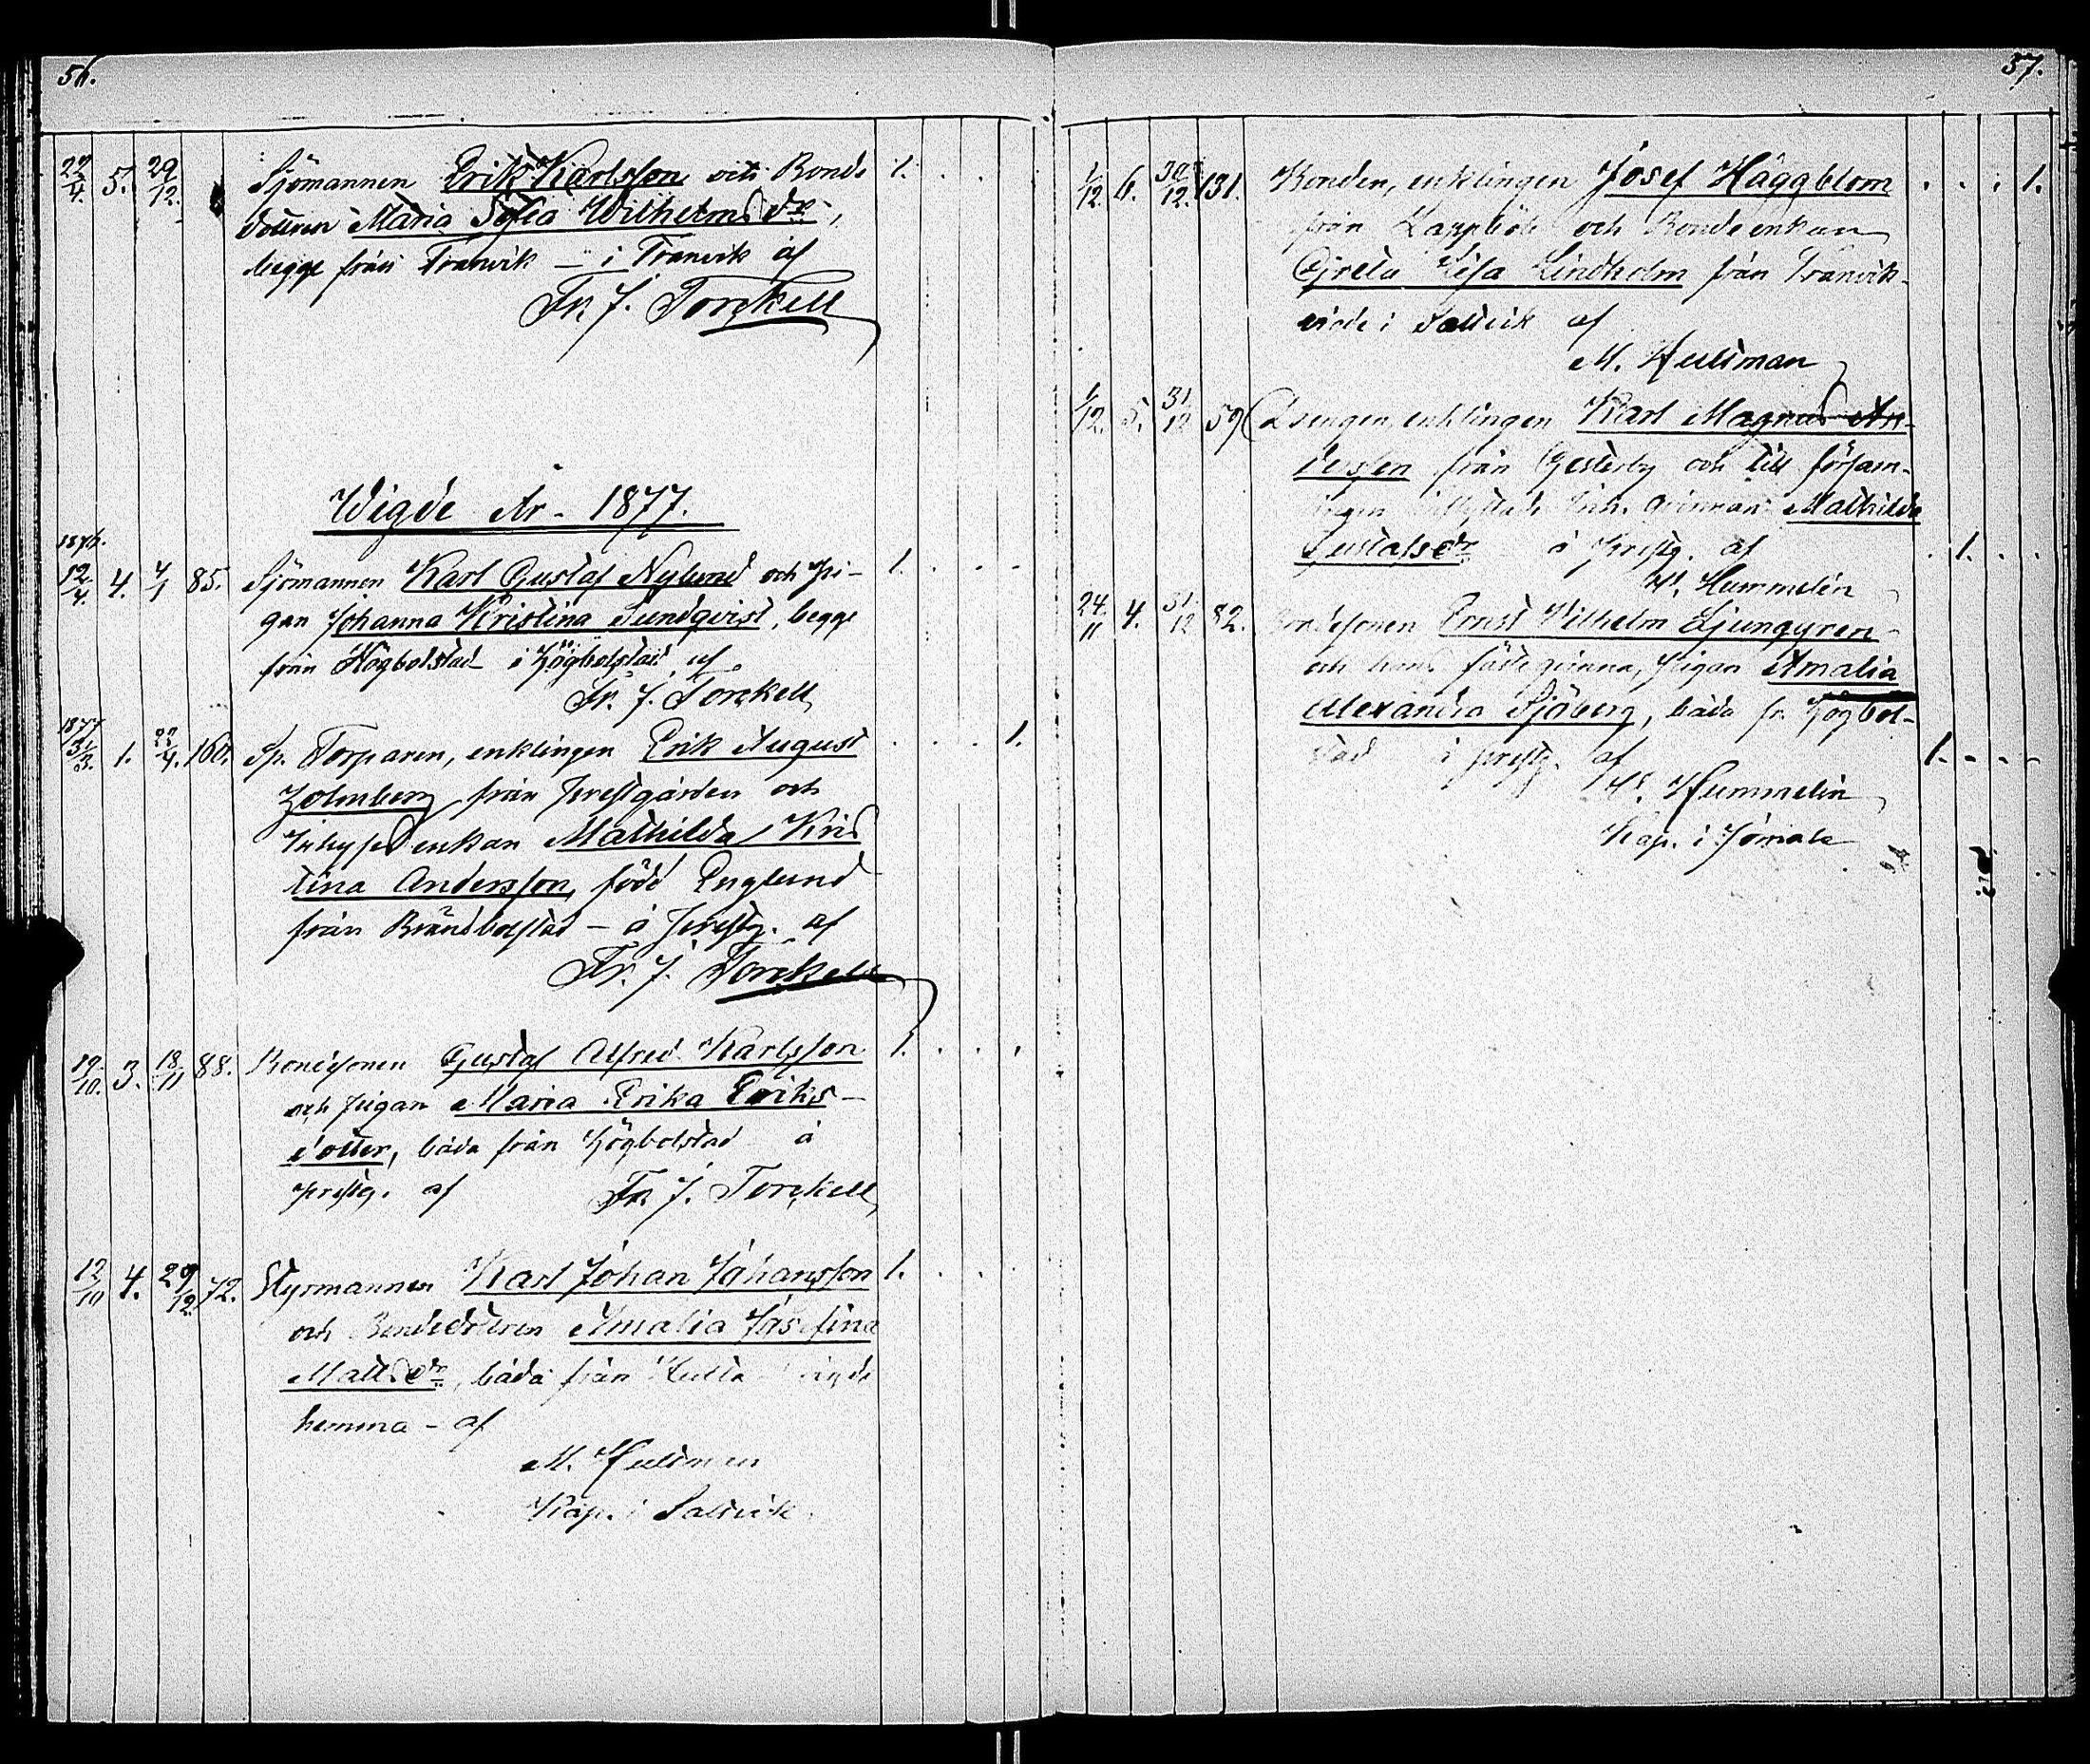 56.
22/4. 5. 29/12. Sjömannen Erik Karlsson och Bonde 1.
dottren Maria Sofia Wilhelmsdr,
begge från Tranvik – i Tranvik af
Fr. J. Torckell
Wigde År 1877.
1876.
12/4. 4. 4/1 85. Sjömannen Karl Gustaf Nylund och pi- 1.
gan Johanna Kristina Sundqvist, begge
från Högbolstad i Högbolstad af
Fr. J. Torckell
1877
31/3. 1. 22/4. 160. Sp. Torparen, enklingen Erik August 1.
Holmberg från Prestgården och
Inhyses enkan Mathilda Kris
tina Andersson, född Englund
från Brändbolstad – å prestg. af
Fr. J. Torckell
19/10. 3. 18/11 88. Bondesonen Gustaf Alfred Karlsson 1.
och pigan Maria Erika Eriks-
dotter, båda från Högbolstad å
prestg. af Fr. J. Torckell
12/10 4. 29/12. 72. Styrmannen Karl Johan Johansson 1.
och Bondedottren Amalia Josefina
Mattsdr, båda från Hulta vigde
hemma – af
M. Hultman
Kap. i Saltvik
57.
1/12. 6. 30/12. 131. Bonden, enklingen Josef Häggblom 1.
från Lappböle och Bondeenkan
Greta Lisa Lindholm från Tranvik
vigde i Saltvik af
M. Hultman
1/12. 5. 31/12 59 Drengen, enklingen Karl Magnus An-
dersson från Gesterby och till försam-
lingen Inh. qvinnan Mathilda
Gustafsdr å prestg. af 1.
Hummelin
24/11 4. 31/12 82. Bondesonen Ernst Vilhelm Ljungqvren
och hans fästeqvinna, pigan Amalia
Alexandra Sjöberg, båda fr. Högbol-
stad i prestg. af 1.
Hummelin
Kap. i Jomala